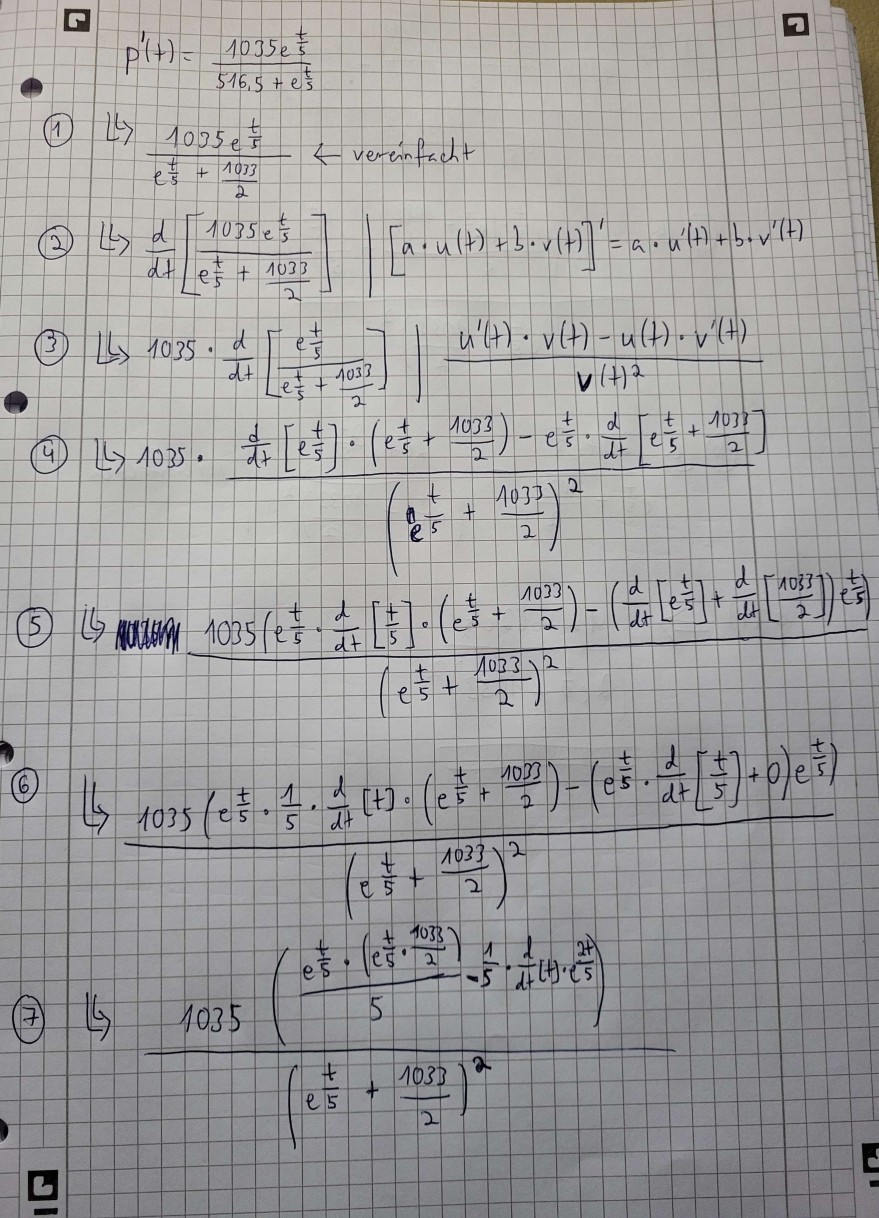 p'(t) = \frac{1035e^{\frac{t}{5}}}{516,5 + e^{\frac{t}{5}}}
① ↳ \frac{1035e^{\frac{t}{5}}}{e^{\frac{t}{5}} + \frac{1033}{2}} ← vereinfacht
② ↳ \frac{d}{dt}\left[\frac{1035e^{\frac{t}{5}}}{e^{\frac{t}{5}} + \frac{1033}{2}}\right] | [a · u(t) + b · v(t)]' = a · u'(t) + b · v'(t)
③ ↳ 1035 · \frac{d}{dt}\left[\frac{e^{\frac{t}{5}}}{e^{\frac{t}{5}} + \frac{1033}{2}}\right] | \frac{u'(t) · v(t) - u(t) · v'(t)}{v(t)^2}
④ ↳ 1035 · \frac{\frac{d}{dt}[e^{\frac{t}{5}}] · (e^{\frac{t}{5}} + \frac{1033}{2}) - e^{\frac{t}{5}} · \frac{d}{dt}[e^{\frac{t}{5}} + \frac{1033}{2}]}{(e^{\frac{t}{5}} + \frac{1033}{2})^2}
⑤ ↳ \frac{1035(e^{\frac{t}{5}} · \frac{d}{dt}[\frac{t}{5}] · (e^{\frac{t}{5}} + \frac{1033}{2}) - (\frac{d}{dt}[e^{\frac{t}{5}}] + \frac{d}{dt}[\frac{1033}{2}])e^{\frac{t}{5}})}{(e^{\frac{t}{5}} + \frac{1033}{2})^2}
⑥ ↳ \frac{1035(e^{\frac{t}{5}} · \frac{1}{5} · \frac{d}{dt}[t] · (e^{\frac{t}{5}} + \frac{1033}{2}) - (e^{\frac{t}{5}} · \frac{d}{dt}[\frac{t}{5}] + 0)e^{\frac{t}{5}})}{(e^{\frac{t}{5}} + \frac{1033}{2})^2}
⑦ ↳ \frac{1035(\frac{e^{\frac{t}{5}} · (e^{\frac{t}{5}} · \frac{1033}{2})}{5} - \frac{1}{5} · \frac{d}{dt}(t) · e^{\frac{2t}{5}})}{(e^{\frac{t}{5}} + \frac{1033}{2})^2}